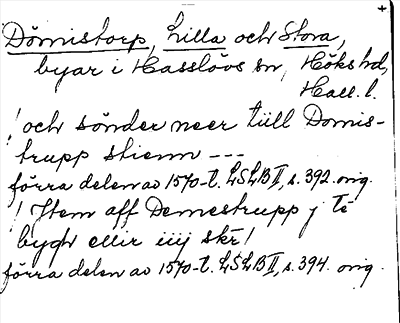 Dömistorp, Lilla och Stora,
byar i Hasslövs sn, Höks hd,
Hall. l.
! och sönder neer tiill Domis-
trupp stienn ---
förra delen av 1570-t. LSLB II, s. 392. orig.
! Item aff Demestrupp j te
bygh ellir iiij skr!
förra delen av 1570-t. LSLB II, s. 394. orig.